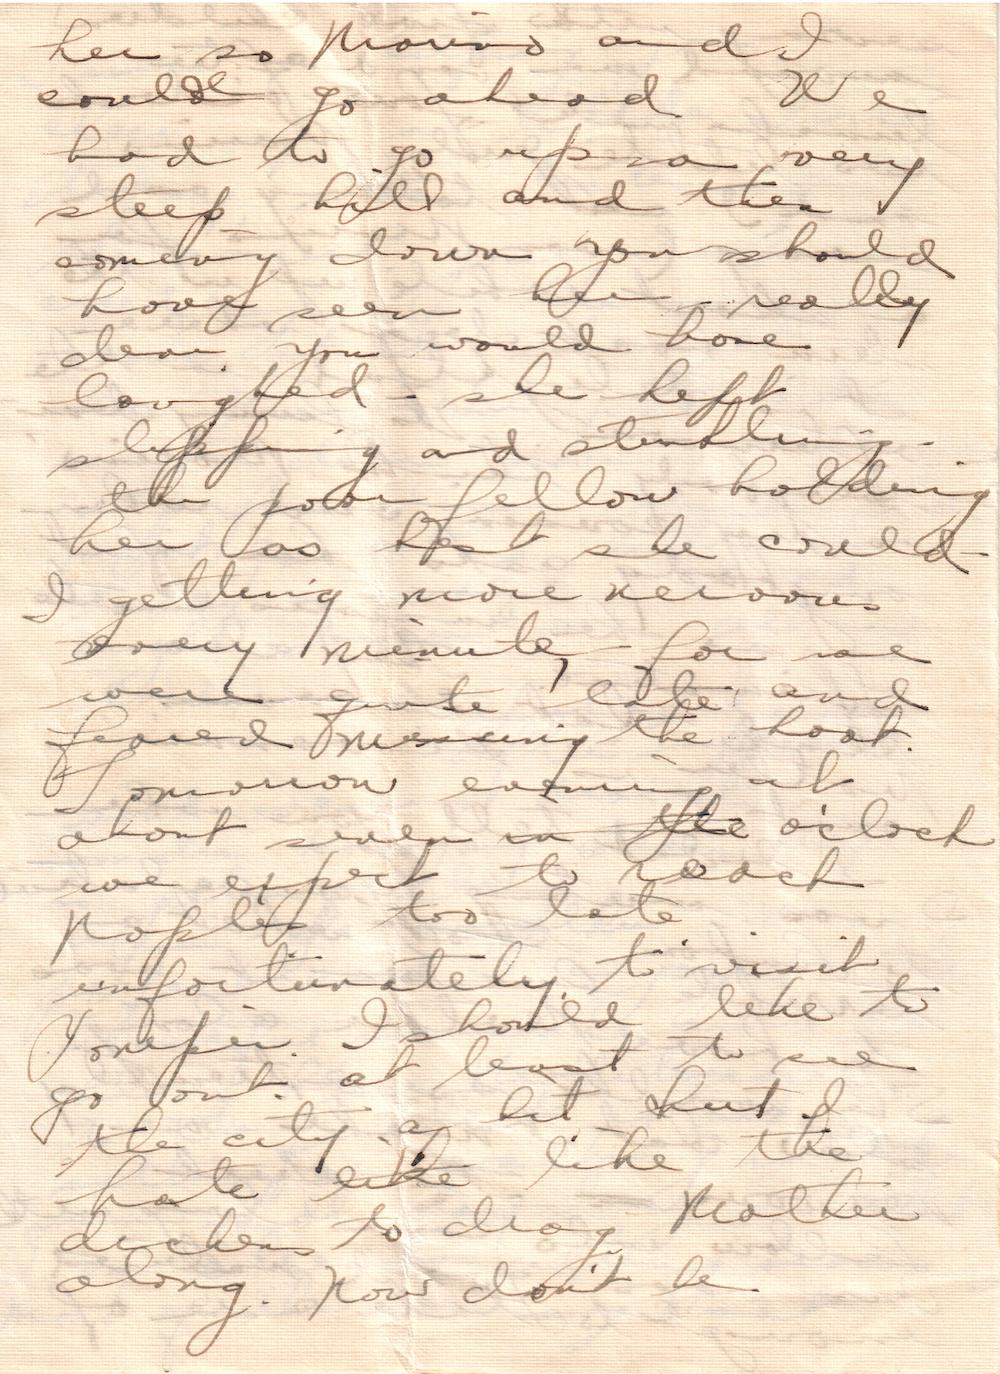 her so Marino and I
could go ahead. We
had to go up a very
steep hill and then
coming down you should
have seen her really
dear you would have
laughed - she kept
slipping and stumbling -
the poor fellow holding
her as best she could -
I getting more nervous
every minute, for we
were quite late and
feared missing the boat.
Tomorrow evening at
about seven in the o'clock
we expect to reach
Naples too late
unfortunately to visit
Pompei. I should like to
go out at least to see
the city a bit but I
hate like like the
dickens to drag Mother
along. Now don't be